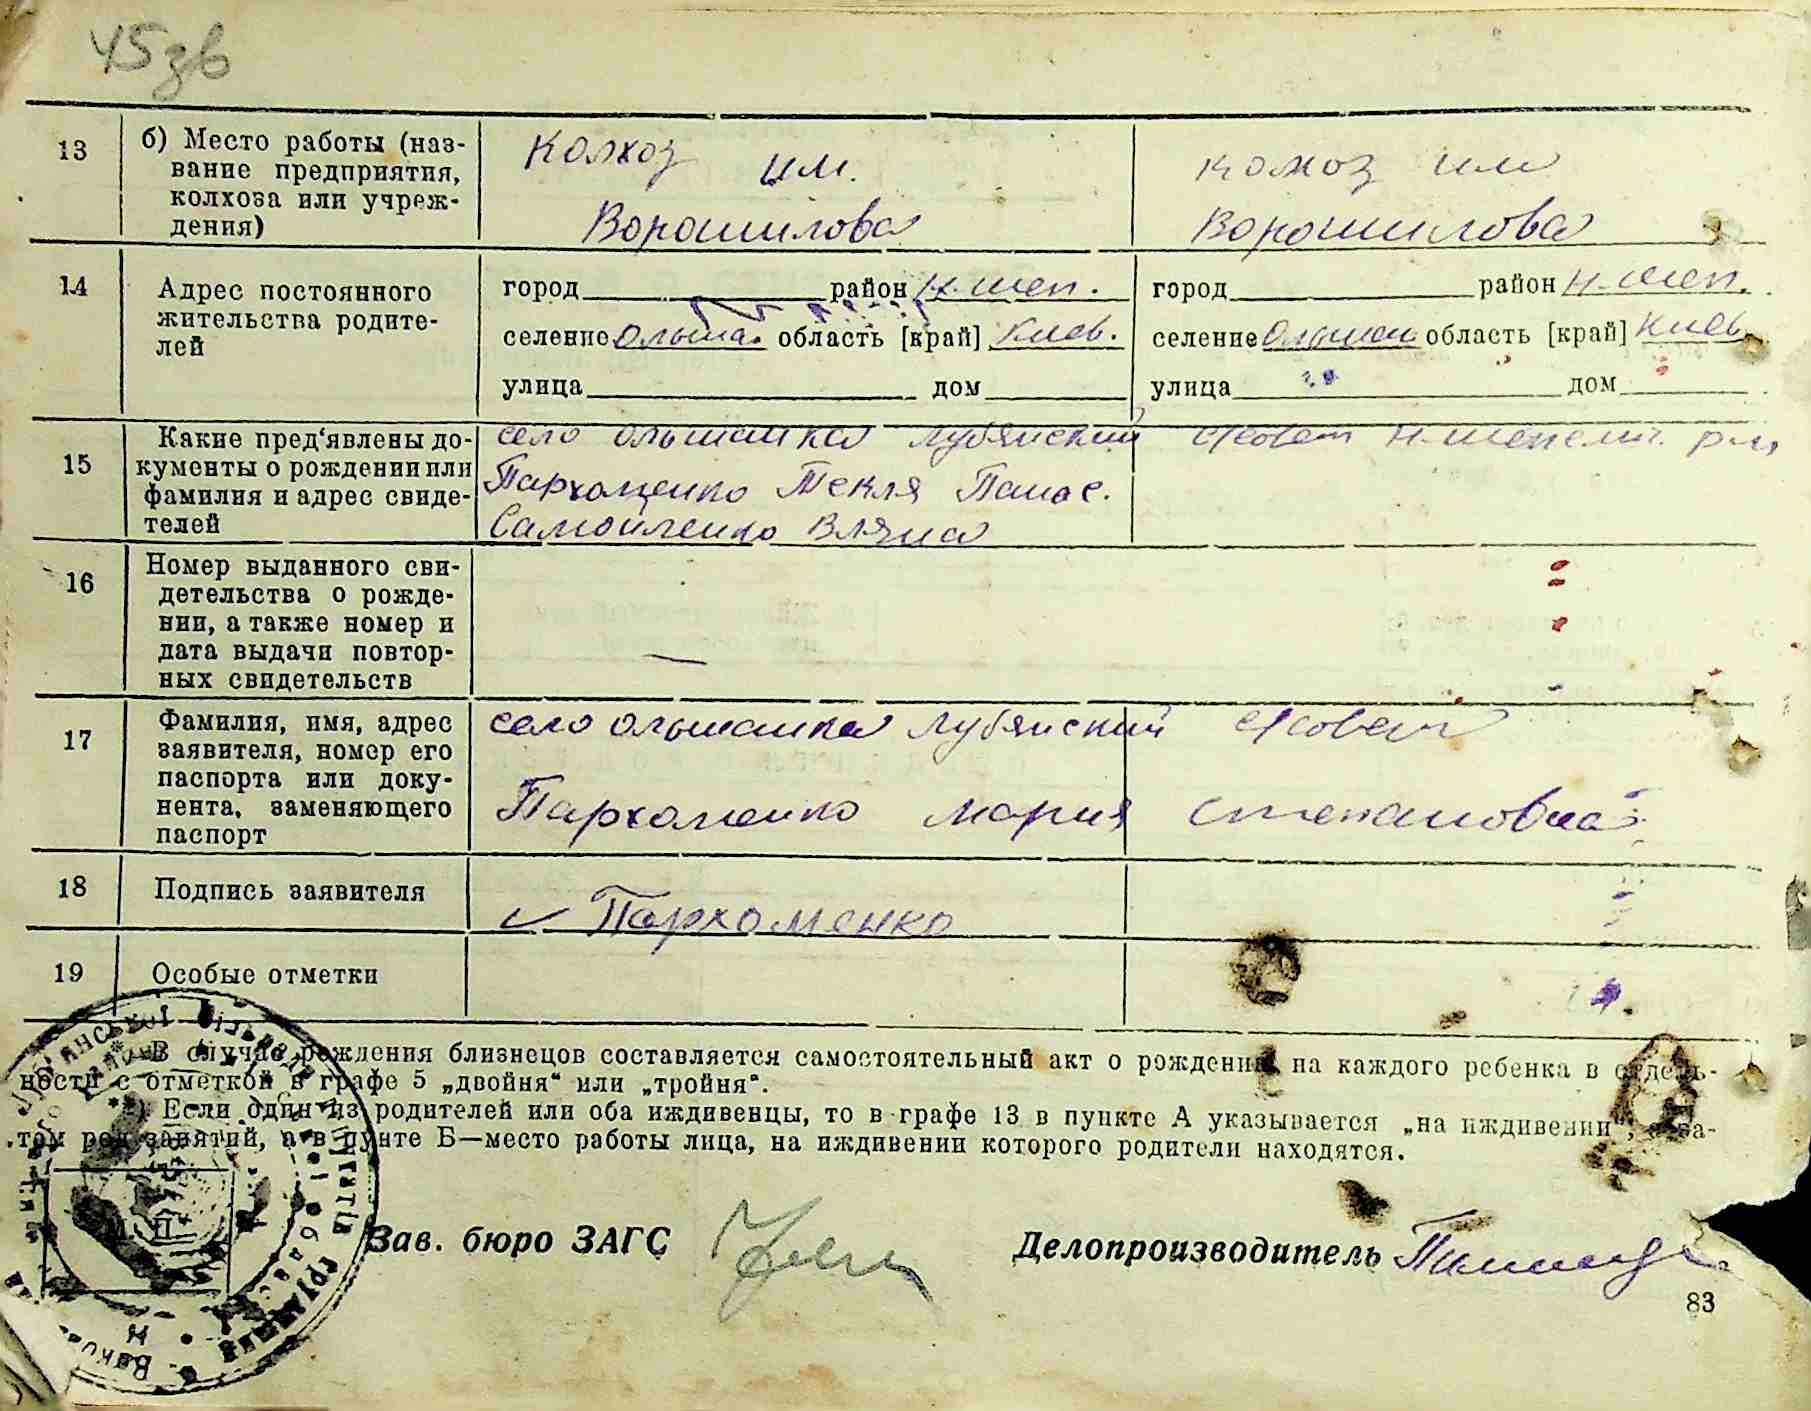 45зв
13
б) Место работы (наз-
вание предприятия,
колхоза или учреж-
дения)
Колхоз им.
Ворошилова
колхоз им
Ворошилова
14
Адрес постоянного
жительства родите-
лей
город район Н-шеп.
селение Ольша. область [край] Киев.
улица дом
город район Н-шеп.
селение Ольшан область [край] Киев
улица дом
15
Какие пред'явлены до-
кументы о рождении или
фамилия и адрес свиде-
телей
село ольшанка лубянский с/совет Н-шепелич. р-на
Пархоменко Текля Панас.
Самойленко
16
Номер выданного сви-
детельства о рожде-
нии, а также номер и
дата выдачи повтор-
ных свидетельств
—
17
Фамилия, имя, адрес
заявителя, номер его
паспорта или доку-
нента, заменяющего
паспорт
село ольшанка лубянский с/совет
Пархоменко мария степановна
18
Подпись заявителя
Пархоменко
19
Особые отметки
В случае рождения близнецов составляется самостоятельный акт о рождении на каждого ребенка в отдель-
ности с отметкой в графе 5 „двойня“ или „тройня“.
Если один из родителей или оба иждивенцы, то в графе 13 в пункте А указывается „на иждивении“, а за-
тем род занятий, а в пунте Б—место работы лица, на иждивении которого родители находятся.
М. П.
Зав. бюро ЗАГС
Делопроизводитель
83